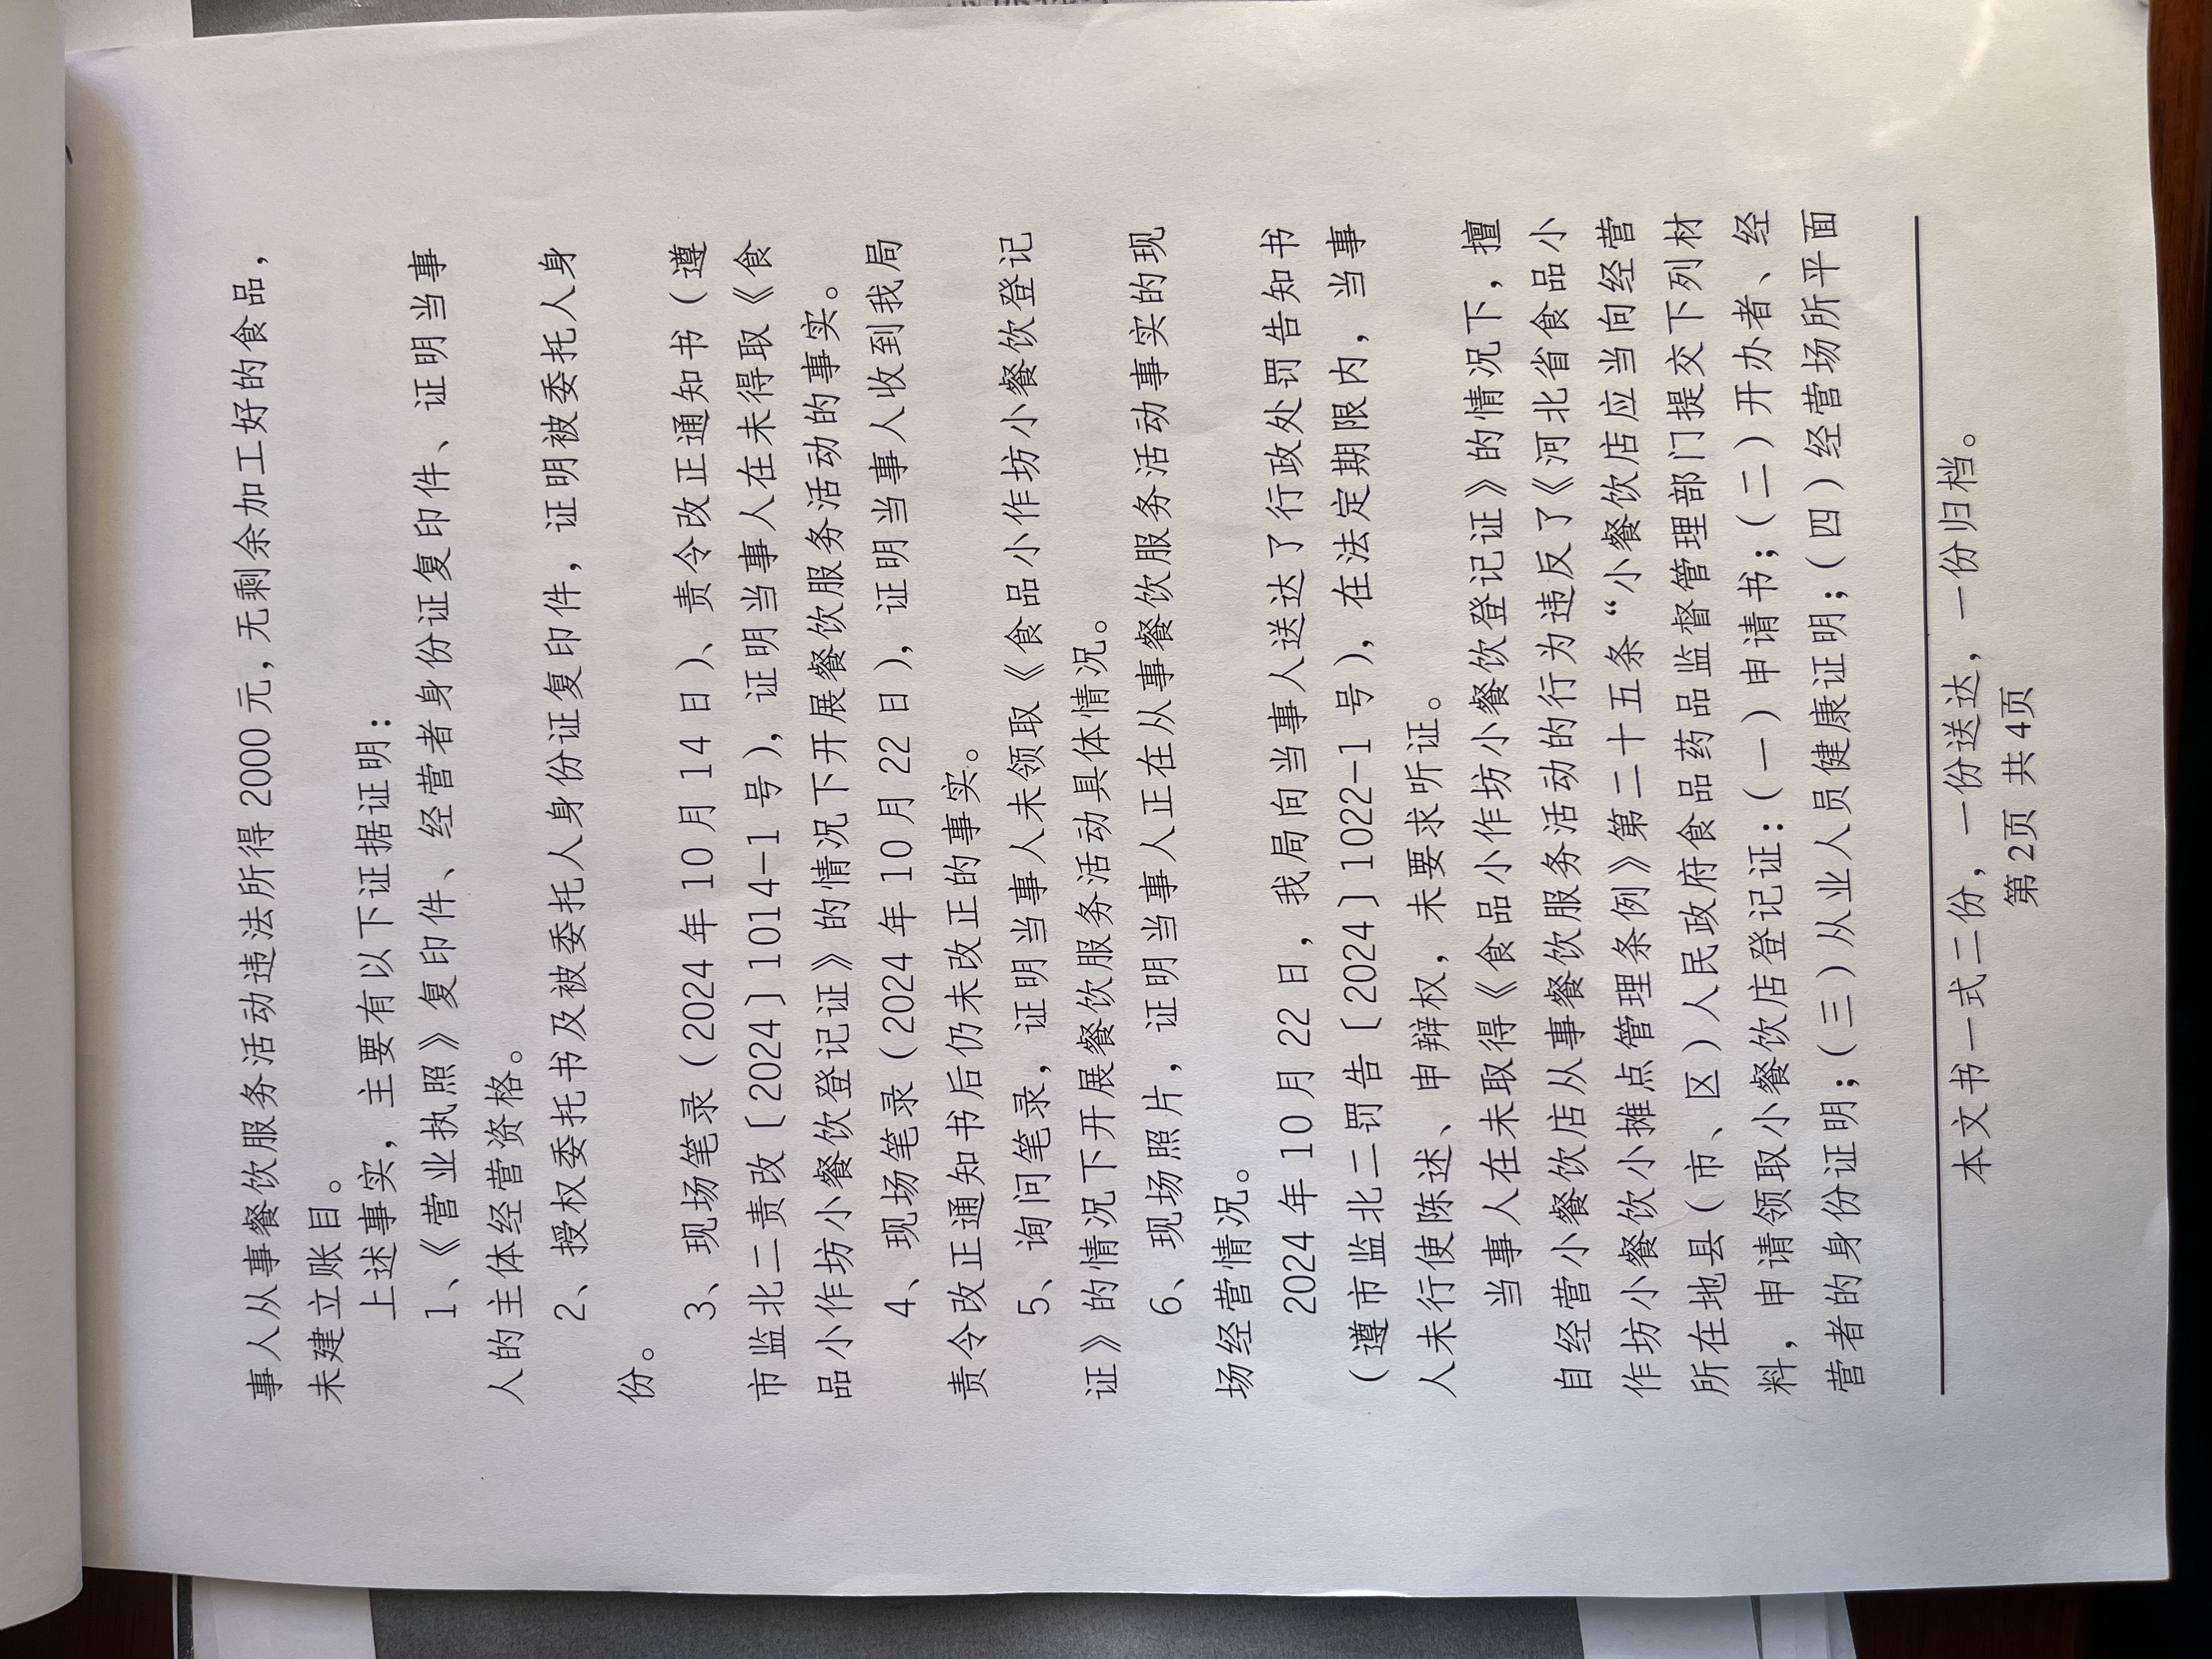 事人从事餐饮服务活动违法所得2000元,无剩余加工好的食品,
未建立账目。
上述事实，主要有以下证据证明：
1、《营业执照》复印件、经营者身份证复印件、证明当事
人的主体经营资格。
2、授权委托书及被委托人身份证复印件，证明被委托人身
份。
3、现场笔录（2024年10月14日）、责令改正通知书（遵
市监北二责改〔2024〕1014-1号），证明当事人在未得取《食
品小作坊小餐饮登记证》的情况下开展餐饮服务活动的事实。
4、现场笔录（2024年10月22日），证明当事人收到我局
责令改正通知书后仍未改正的事实。
5、询问笔录，证明当事人未领取《食品小作坊小餐饮登记
证》的情况下开展餐饮服务活动具体情况。
6、现场照片，证明当事人正在从事餐饮服务活动事实的现
场经营情况。
2024年10月22日，我局向当事人送达了行政处罚告知书
（遵市监北二罚告〔2024〕1022-1号），在法定期限内，当事
人未行使陈述、申辩权，未要求听证。
当事人在未取得《食品小作坊小餐饮登记证》的情况下，擅
自经营小餐饮店从事餐饮服务活动的行为违反了《河北省食品小
作坊小餐饮小摊点管理条例》第二十五条“小餐饮店应当向经营
所在地县（市、区）人民政府食品药品监督管理部门提交下列材
料，申请领取小餐饮店登记证：（一）申请书；（二）开办者、经
营者的身份证明；（三）从业人员健康证明；（四）经营场所平面
本文书一式二份，一份送达，一份归档。
第2页 共4页